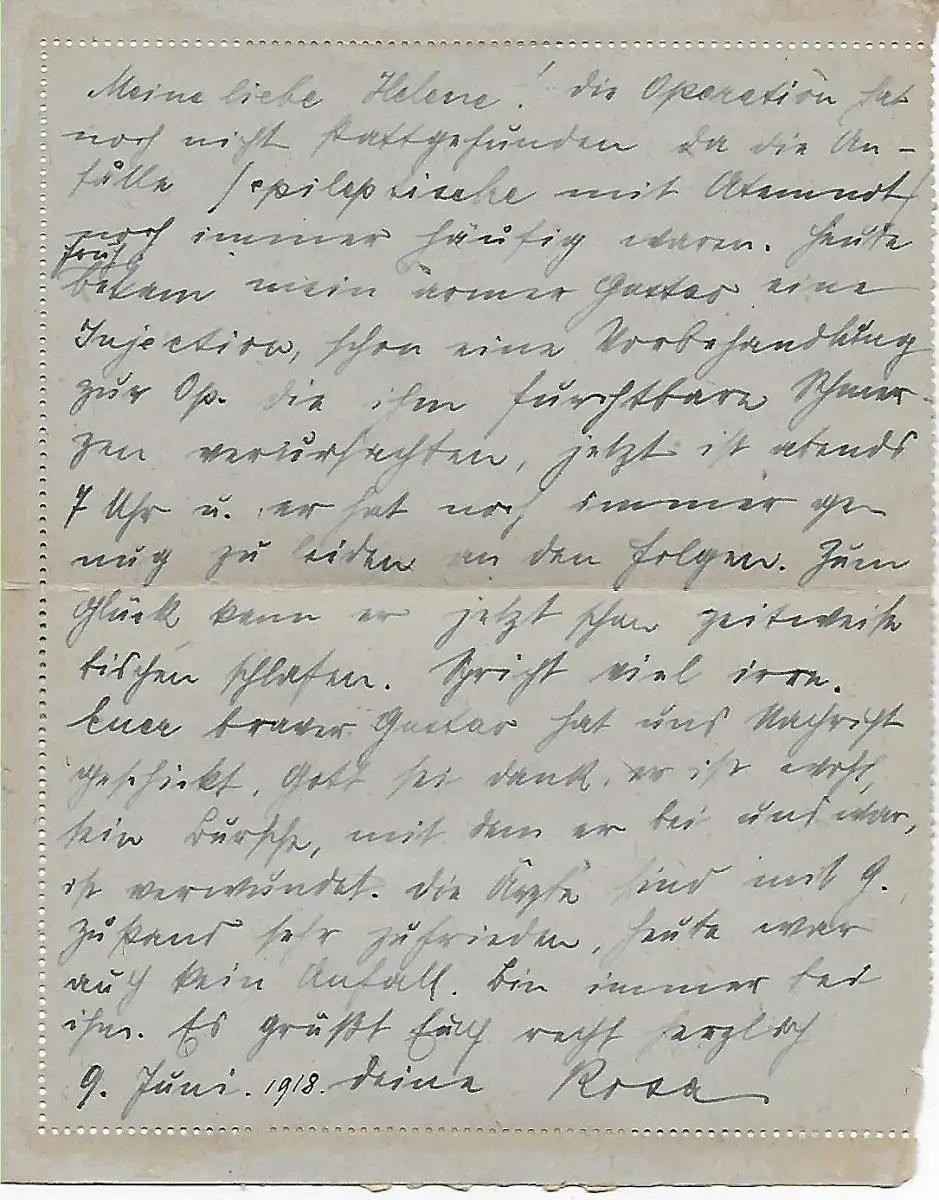 Meine liebe Helene! Die Operation hat
noch nicht stattgefunden da die An-
fälle (epileptische mit Atemnot)
noch immer häufig waren. Heute
früh
bekam mein armer Gustav eine
Injection, schon eine Vorbehandlung
zur Op. die ihm furchtbare Schmer-
zen verursachten, jetzt ist abends
7 Uhr u. er hat noch immer ge-
nug zu leiden an den Folgen. Zum
Glück kann er jetzt schon zeitweise
bischen schlafen. Spricht viel irre.
Euer braver Gustav hat uns Nachricht
geschickt, Gott sei dank, er ist wohl,
sein Bursche, mit dem er bei uns war,
ist verwundet. Die Ärzte sind mit G.
zustand sehr zufrieden, heute war
auch kein Anfall. Bin immer bei
ihm. Es grüßt Euch recht herzlich
9. Juni. 1918. Deine Rosa